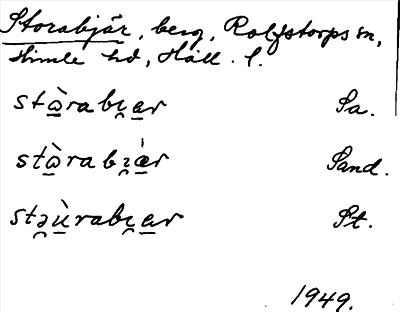 Storabjär, berg, Rolfstorps sn,
Himle hd, Hall. l.
stò̱rabɪ̯a̱r Sa.
stò̱rabɪ̯á̱r Sand.
stə̯ù̱rabɪ̯a̱r St.
1949.